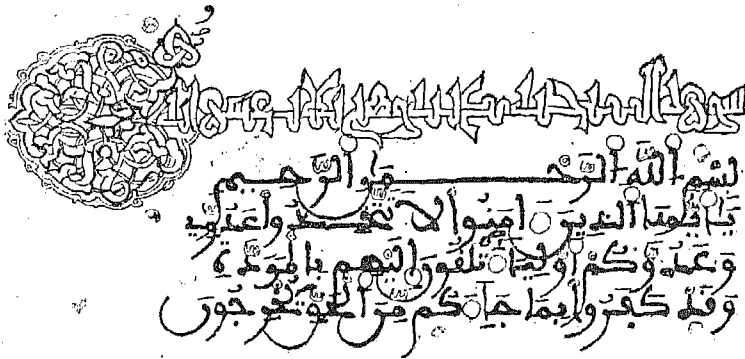 سورة
بِسْمِ اللَّهِ الرَّحْمَٰنِ الرَّحِيمِ
يَا أَيُّهَا الَّذِينَ آمَنُوا لَا تَتَّخِذُوا عَدُوِّي
وَعَدُوَّكُمْ أَوْلِيَاءَ تُلْقُونَ إِلَيْهِم بِالْمَوَدَّةِ
وَقَدْ كَفَرُوا بِمَا جَاءَكُم مِّنَ الْحَقِّ يُخْرِجُونَ